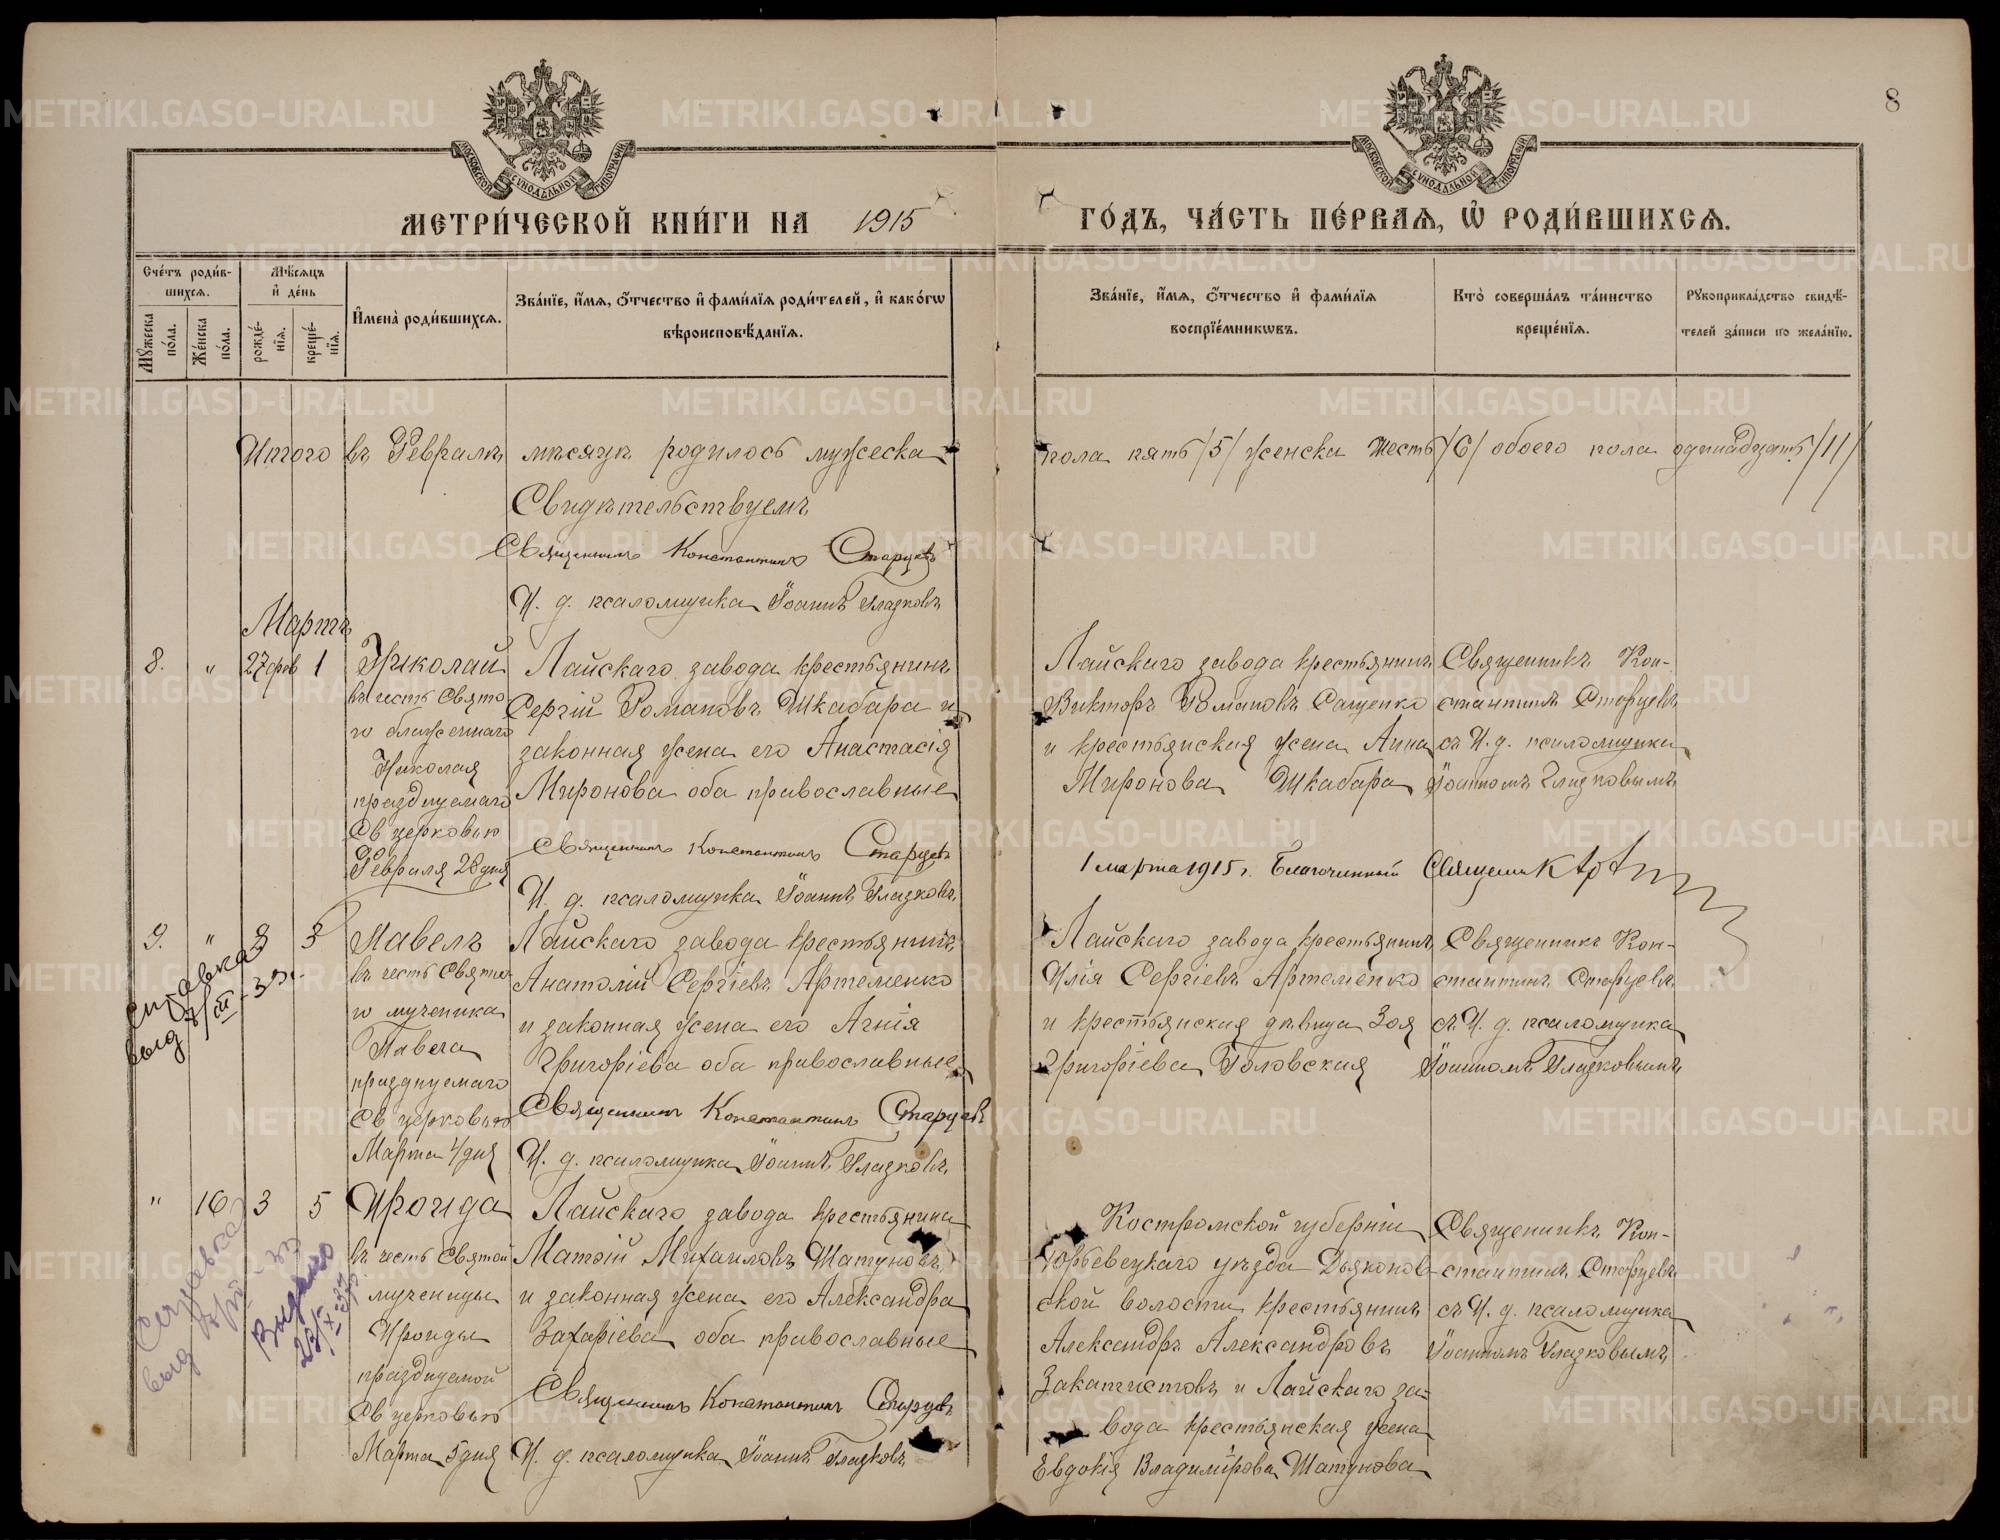 8
МОСКОВСКОЙ СѴНОДАЛЬНОЙ ТИПОГРАФІИ
МОСКОВСКОЙ СѴНОДАЛЬНОЙ ТИПОГРАФІИ
МЕТРИ́ЧЕСКОЙ КНИ́ГИ НА 1915 ГО́ДЪ, ЧА́СТЬ ПЕ́РВАѦ, Ѡ҆ РОДИ́ВШИХСѦ.
Сче́тъ роди́в-
шихсѧ.
Мꙋ́жеска по́ла.
Же́нска по́ла.
Мѣ́сѧцъ
и҆ де́нь
рожде́-
нїѧ.
креще́-
нїѧ.
И҆мена̀ роди́вшихсѧ.
Зва́нїе, и҆́мѧ, ѻ҆́тчество и҆ фами́лїѧ роди́телей, и҆ како́гѡ
вѣроисповѣ́данїѧ.
Зва́нїе, и҆́мѧ, ѻ҆́тчество и҆ фами́лїѧ
воспрїе́мникѡвъ.
Кто̀ соверша́лъ та́инство
креще́нїѧ.
Рꙋкоприкла́дство свидѣ́-
телей за́писи по жела́нїю.
Итого въ Февралѣ мѣсяцѣ родилось мужеска пола пять /5/ женска шесть /6/ обоего пола одинадцать /11/
Свидѣтельствуемъ
Священникъ Константинъ Старцевъ
И. д. псаломщика Іоаннъ Глазковъ
Мартъ
8. " 27 фев 1
Николай
въ честь Свято
го блаженнаго
Николая
празднуемаго
Св церковью
Февраля 28 дня
Лайскаго завода крестьянинъ
Сергій Романовъ Шкабара и
законная жена его Анастасія
Миронова оба православные
Священникъ Константинъ Старцевъ
И. д. псаломщика Іоаннъ Глазковъ
Лайскаго завода крестьянинъ
Викторъ Романовъ Сащенко
и крестьянская жена Анна
Миронова Шкабара
Священникъ Кон-
стантинъ Старцевъ
съ И. д. псаломщика
Іоанномъ Глазковымъ
1 марта 1915 г. Благочинный Священник
9. " 3 3
справка
выд 7/III-33 г.
Павелъ
въ честь Свята
го мученика
Павла
празднуемаго
Св церковью
Марта 4 дня
Лайскаго завода крестьянинъ
Анатолій Сергіевъ Артеменко
и законная жена его Агнія
Григоріева оба православные
Священникъ Константинъ Старцевъ
И. д. псаломщика Іоаннъ Глазковъ
Лайскаго завода крестьянинъ
Илія Сергіевъ Артеменко
и крестьянская дѣвица Зоя
Григоріева Головская
Священникъ Кон-
стантинъ Старцевъ
съ И. д. псаломщика
Іоанномъ Глазковымъ
" 10 3 5
Справка
выд
Выдано
23/X 37 г.
Ираида
въ честь Святой
мученицы
Ираиды
празднуемой
Св церковью
Марта 5 дня
Лайскаго завода крестьянина
Матѳій Михаиловъ Шатуновъ
и законная жена его Александра
Захаріева оба православные
Священникъ Константинъ Старцевъ
И. д. псаломщика Іоаннъ Глазковъ
Костромской губерніи
Юрьевецкаго уѣзда Дьяконов-
ской волости крестьянинъ
Александръ Александровъ
Закатистовъ и Лайскаго за-
вода крестьянская жена
Евдокія Владимірова Шатунова
Священникъ Кон-
стантинъ Старцевъ
съ И. д. псаломщика
Іоанномъ Глазковымъ
METRIKI.GASO-URAL.RU